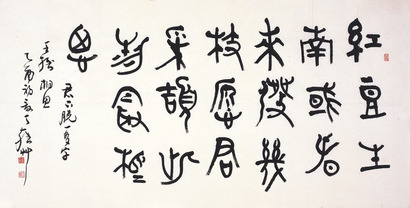 紅豆生
南或春
來發幾
枝愿君
采擷此
物最相
思
君下脫一多字
王維相思